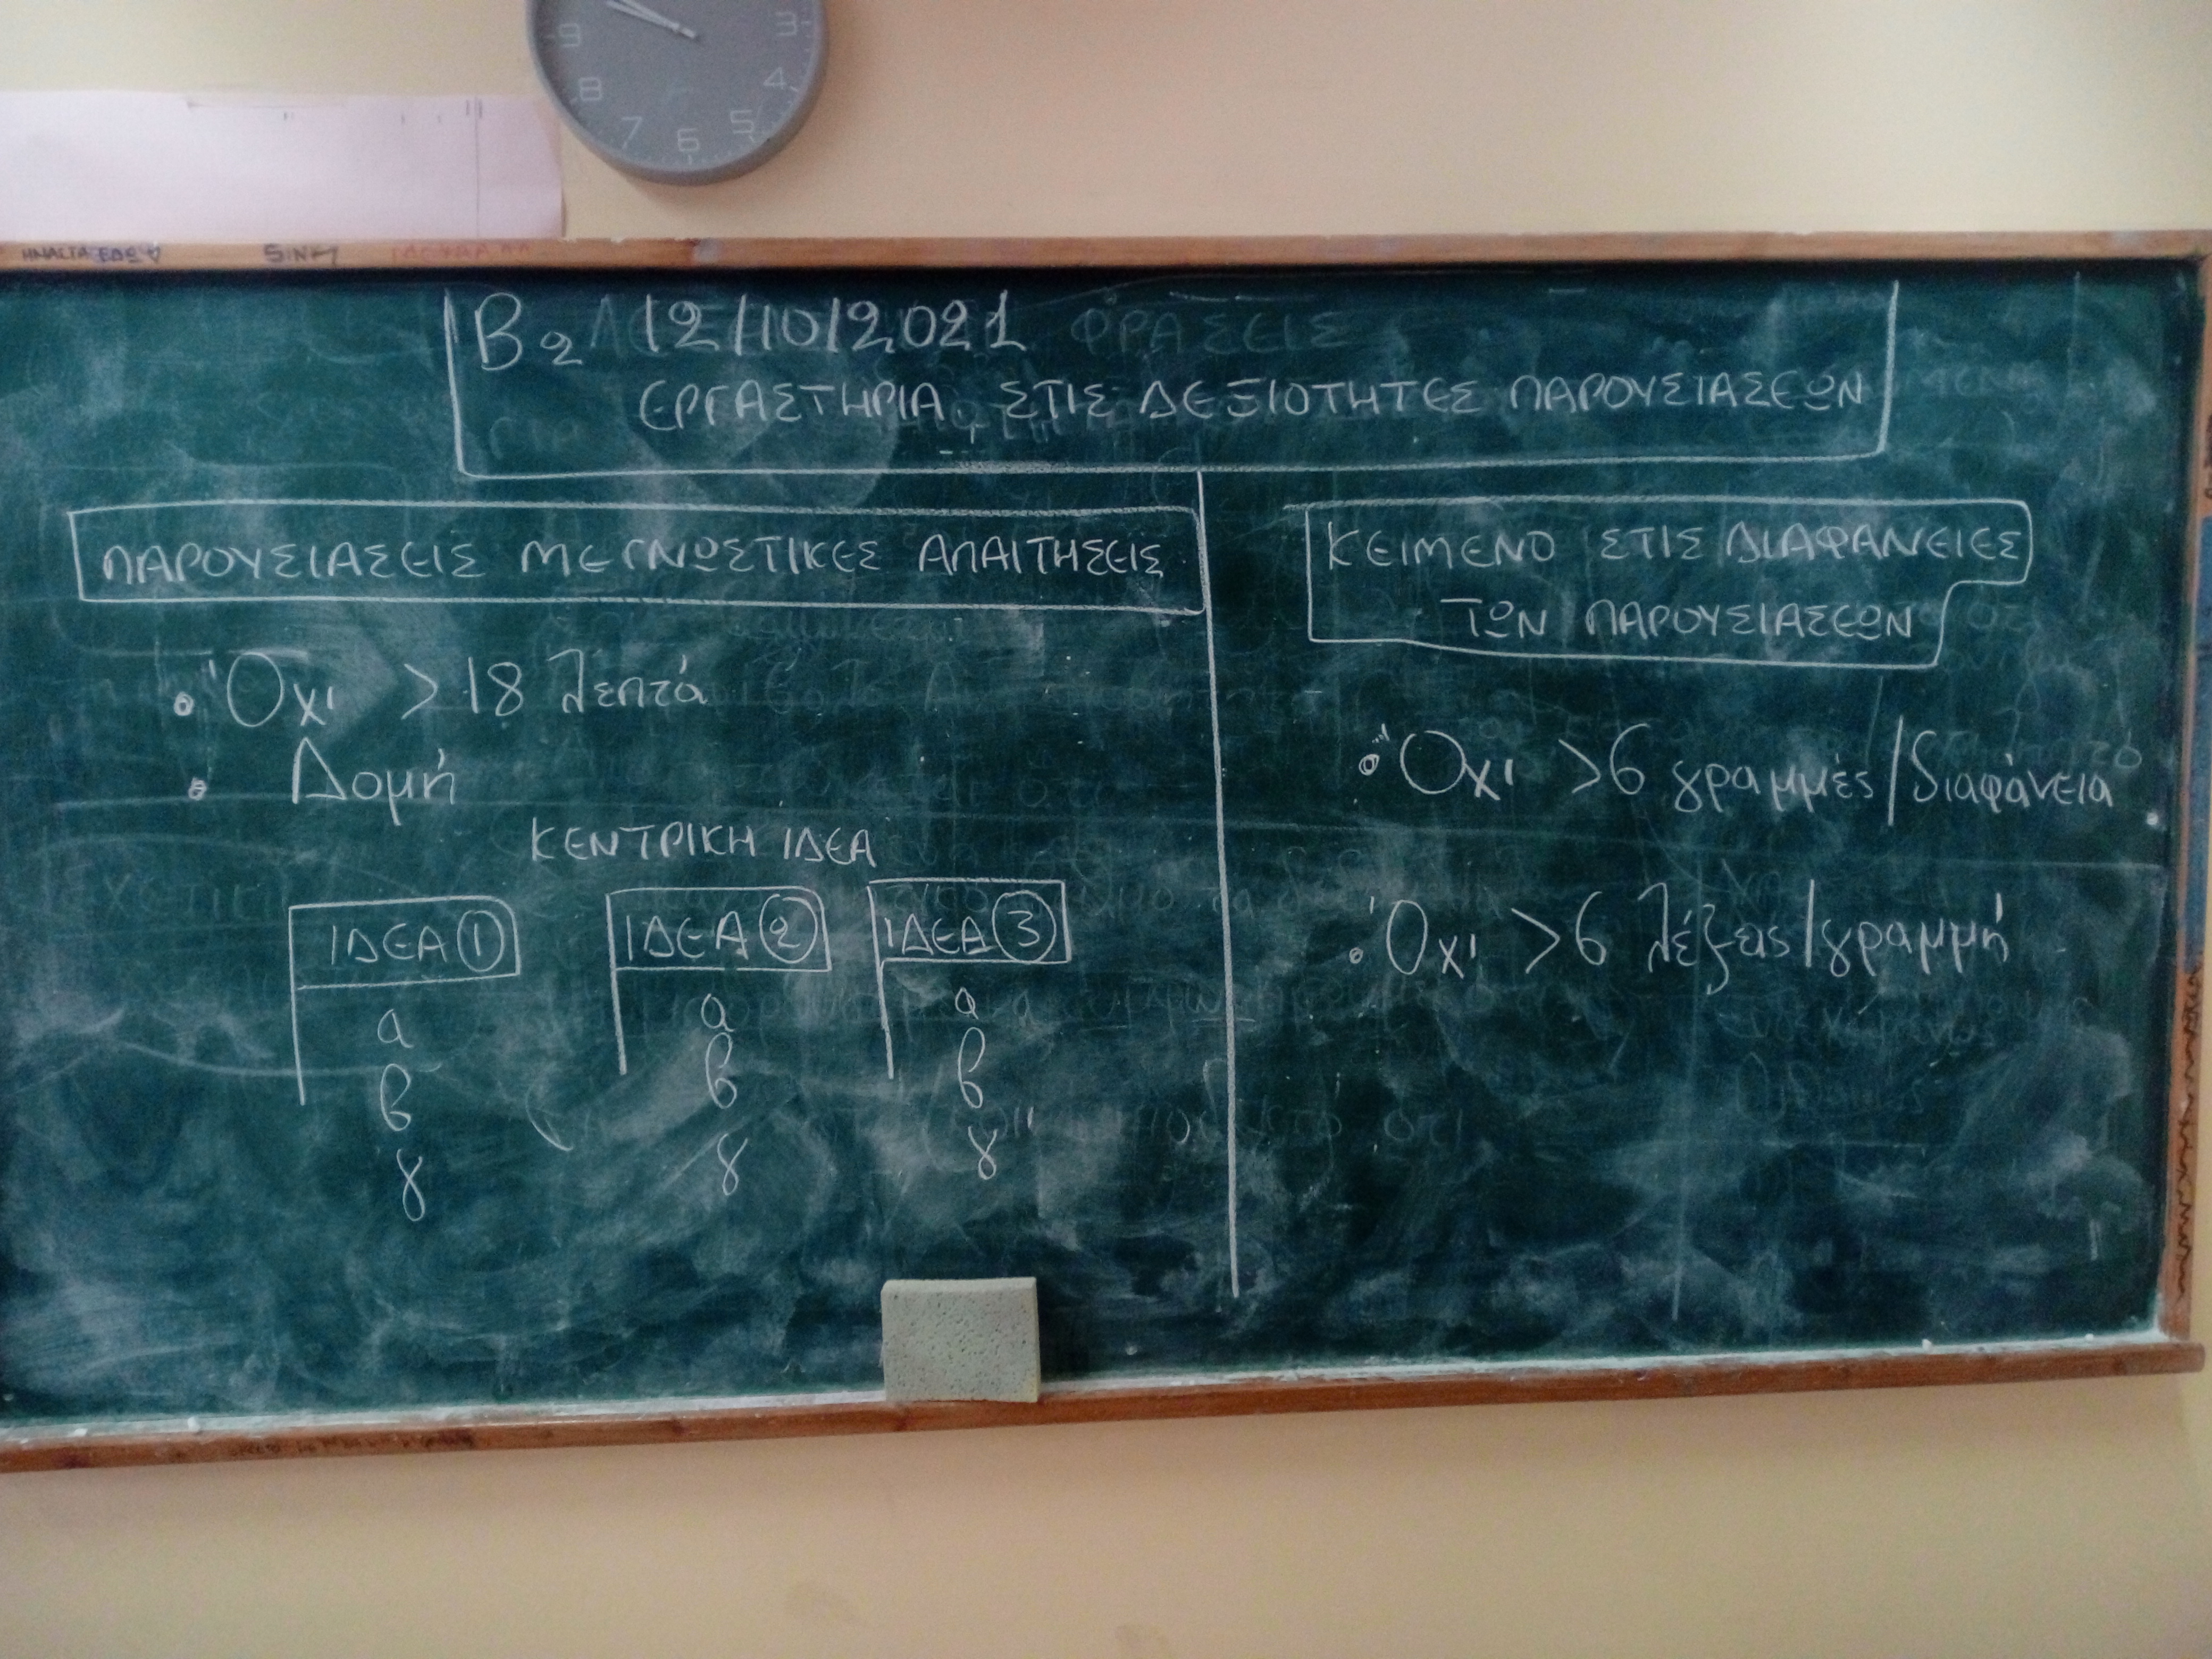 9 3
8 4
7 6 5
ΗΜΑΣΤΑ ΕΔΩ
Β2 12/10/2021
ΦΡΑΣΕΙΣ
ΕΡΓΑΣΤΗΡΙΑ ΣΤΙΣ ΔΕΞΙΟΤΗΤΕΣ ΠΑΡΟΥΣΙΑΣΕΩΝ
ΠΑΡΟΥΣΙΑΣΕΙΣ ΜΕ ΓΝΩΣΤΙΚΕΣ ΑΠΑΙΤΗΣΕΙΣ
• Όχι > 18 λεπτά
• Δομή
ΚΕΝΤΡΙΚΗ ΙΔΕΑ
ΙΔΕΑ 1 ΙΔΕΑ 2 ΙΔΕΑ 3
α α α
β β β
γ γ γ
ΚΕΙΜΕΝΟ ΣΤΙΣ ΔΙΑΦΑΝΕΙΕΣ
ΤΩΝ ΠΑΡΟΥΣΙΑΣΕΩΝ
• Όχι >6 γραμμές/διαφάνεια
• Όχι >6 λέξεις/γραμμή